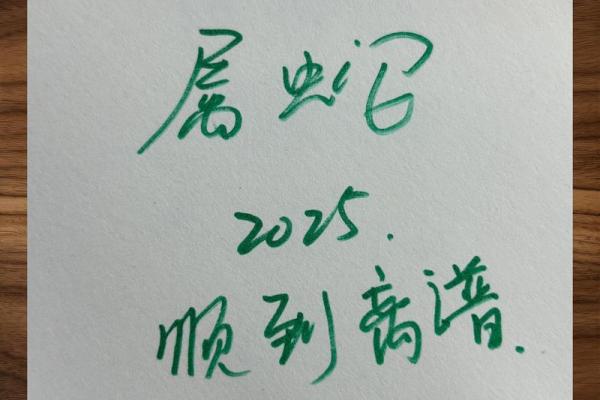 属蛇
2025.
顺到离谱.